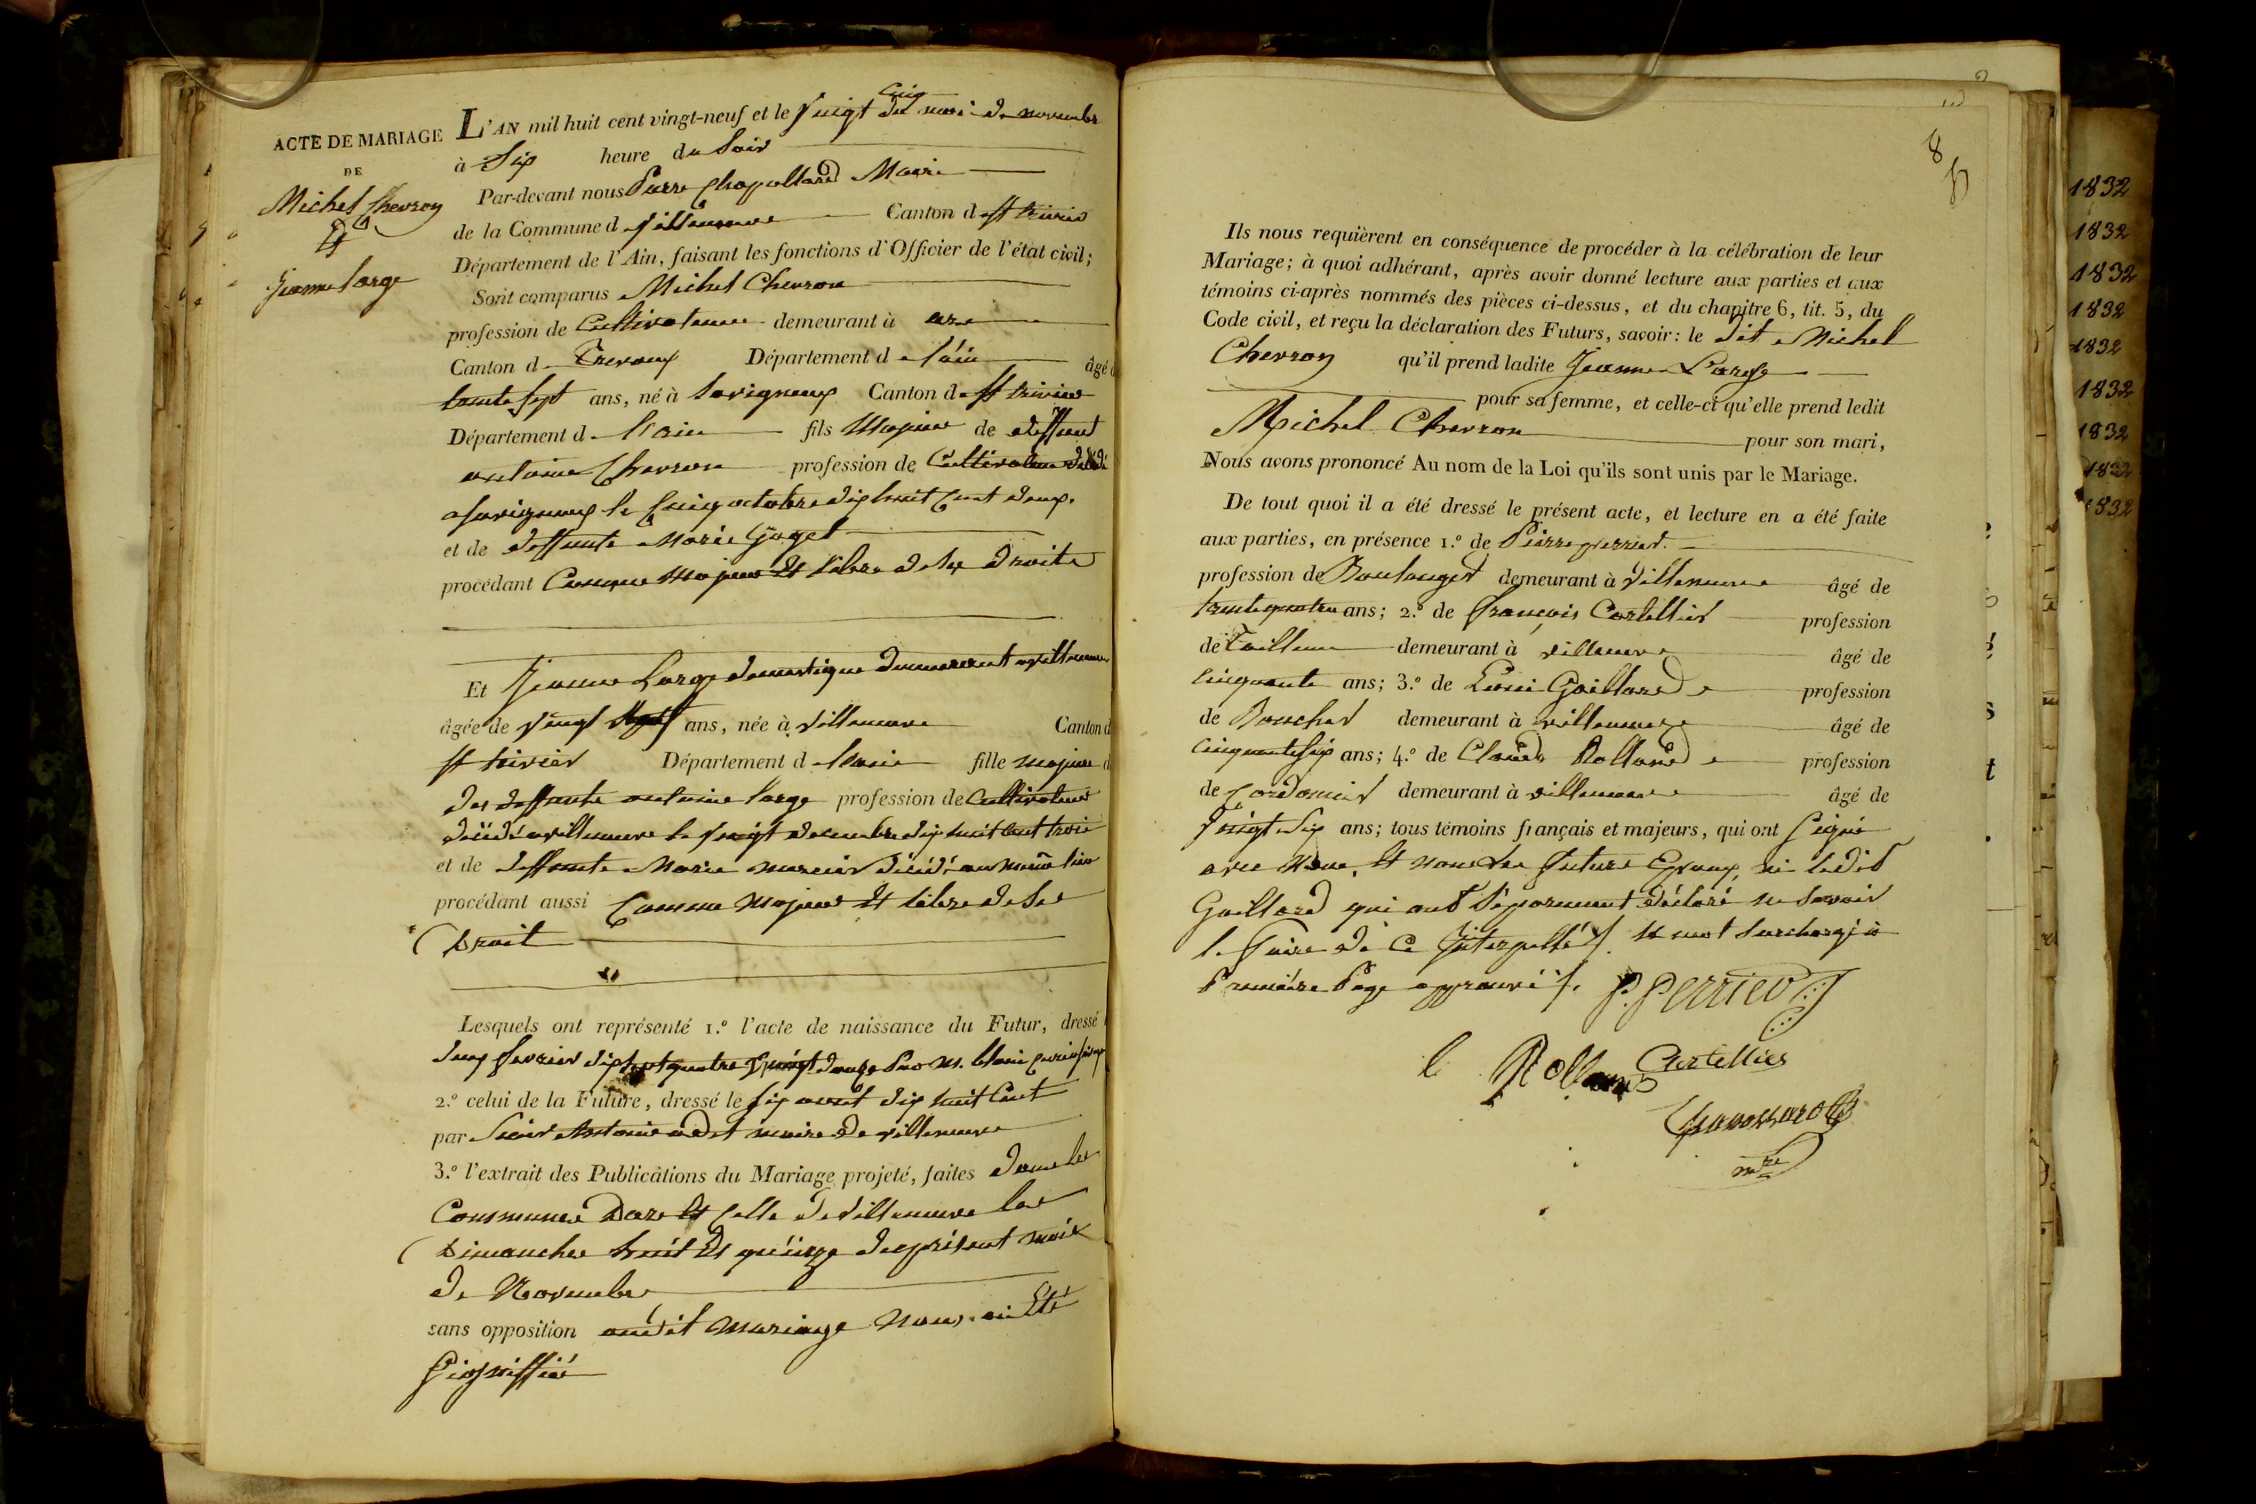 ACTE DE MARIAGE
DE
Michel Chevron
Et
Jeanne Large
L'AN mil huit cent vingt-neuf et le vingt cinq du mois de novembre
à Six heure du Soir
Par-devant nous Pierre Chapollard Maire
de la Commune d villeneuve Canton d st trivier
Département de l'Ain, faisant les fonctions d'Officier de l'état civil;
Sont comparus Michel Chevron
profession de Cultivateur demeurant à ars
Canton d Trevoux Département d l'ain âgé d
trente sept ans, né à Savigneux Canton d st trivier
Département d L'ain fils Majeur de deffunt
antoine Chevron profession de Cultivateur décédé
a Savigneux le Cinq octobre dix huit Cent deux
et de deffunte Marie Goyet
procédant Comme Majeur Et Libre de Ses Droits
Et Jeanne Large domestique demeurant a villeneuve
âgée de vingt ans, née à villeneuve Canton d
st trivier Département d L'ain fille majeure d
des deffunts antoine Large profession de Cultivateur
décédé a villeneuve le vingt decembre dix huit Cent trois
et de deffunte Marie décédé au même lieu
procédant aussi Comme Majeur Et Libre de Ses
Droit
Lesquels ont représenté 1.° l'acte de naissance du Futur, dressé
deux fevrier dix sept quatre vingt douze Par M.
2.° celui de la Future, dressé le Six dix huit Cent
par Sieur Antoine maire de villeneuve
3.° l'extrait des Publications du Mariage projeté, faites dans les
Communes Dars Et Celle de Villeneuve les
Dimanches huit Et quinze du présent mois
de Novembre
sans opposition audit mariage Nous ai Eté
Signiffiés
8
Ils nous requièrent en conséquence de procéder à la célébration de leur
Mariage; à quoi adhérant, après avoir donné lecture aux parties et aux
témoins ci-après nommés des pièces ci-dessus, et du chapitre 6, tit. 5, du
Code civil, et reçu la déclaration des Futurs, savoir: le dit Michel
Chevron qu'il prend ladite Jeanne Large
pour sa femme, et celle-ci qu'elle prend ledit
Michel Chevron pour son mari,
Nous avons prononcé Au nom de la Loi qu'ils sont unis par le Mariage.
De tout quoi il a été dressé le présent acte, et lecture en a été faite
aux parties, en présence 1.° de Pierre perrier
profession de Boulanger demeurant à Villeneuve âgé de
trente quatre ans; 2.° de françois Cortellier profession
de Tailleur demeurant à villeneuve âgé de
Cinquante ans; 3.° de Louis Gaillard profession
de Boucher demeurant à villeneuve âgé de
Cinquante Six ans; 4.° de Claude Rolland profession
de Cordonier demeurant à villeneuve âgé de
Vingt Six ans; tous témoins français et majeurs, qui ont Signé
avec Nous, Et non Les future Epoux, ni ledit
Gaillard qui ont Séparement déclaré ne Savoir
le Faire de Ce interpellés. le mot Surchargé à
Première Page approuvé
P. Perrier
C Rolland
Cortellier
Chapollard
mre
1832
1832
1832
1832
1832
1832
1832
1832
1832